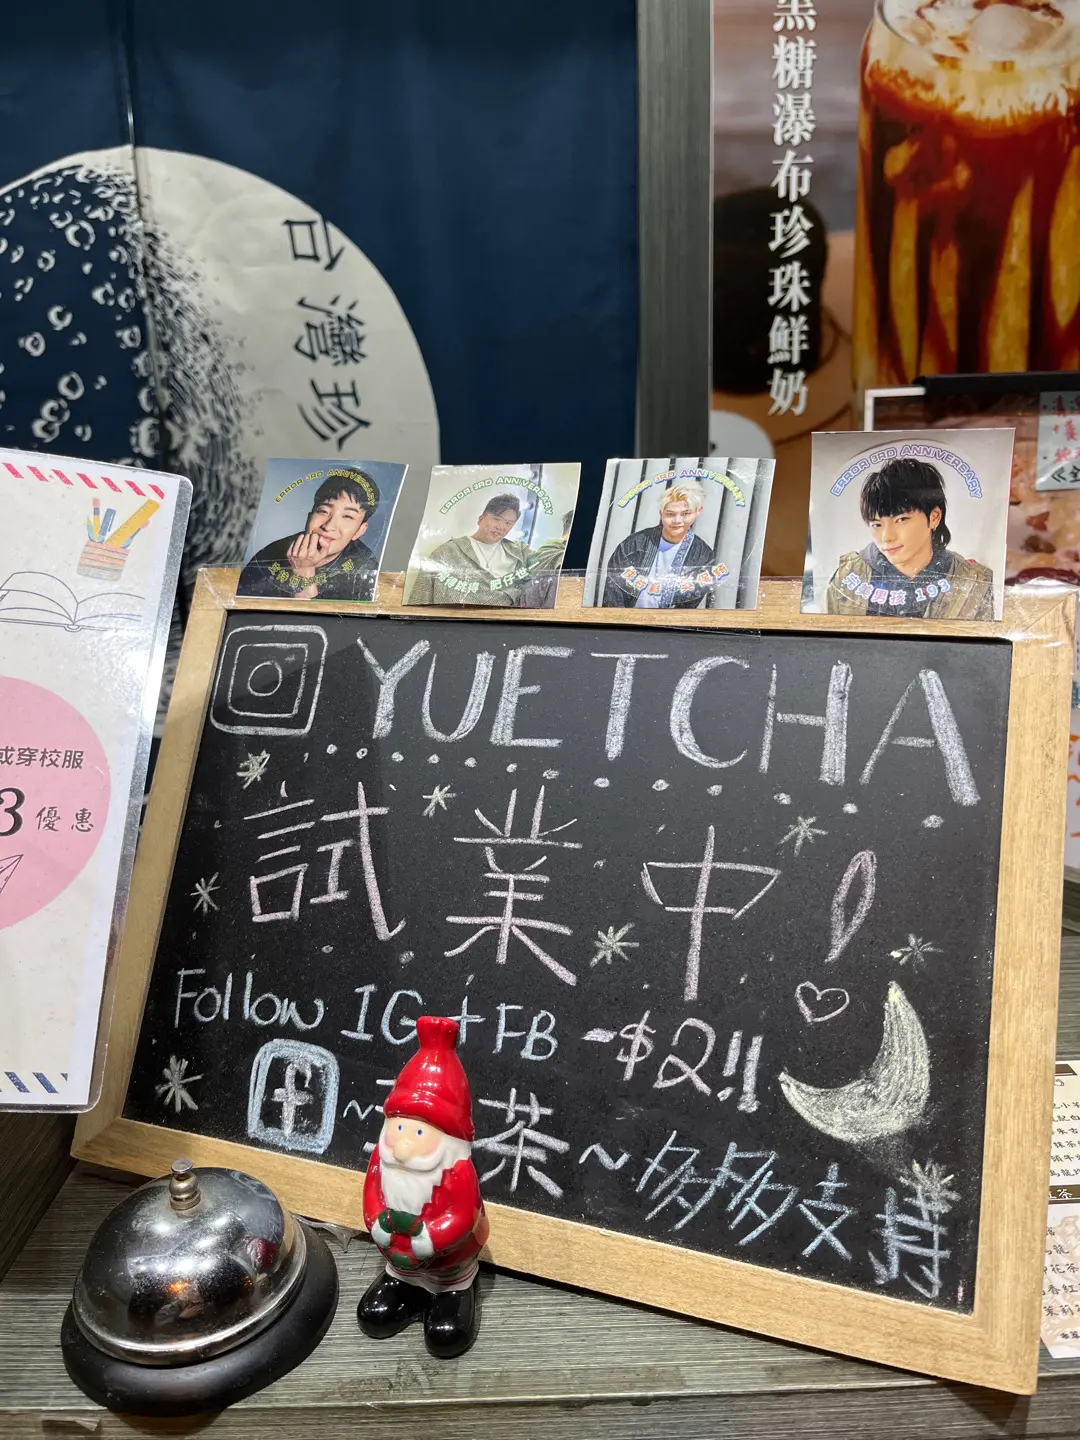 黑糖瀑布珍珠鮮奶
台灣珍
ERROR 3RD ANNIVERSARY
ERROR 3RD ANNIVERSARY
肥仔世一
ERROR 3RD ANNIVERSARY
ERROR 3RD ANNIVERSARY
男孩 193
或穿校服
3 優惠
YUETCHA
試業中
Follow IG + FB -$2!!
f ~ 茶 ~ 多多支持
花茶
香紅
茉莉